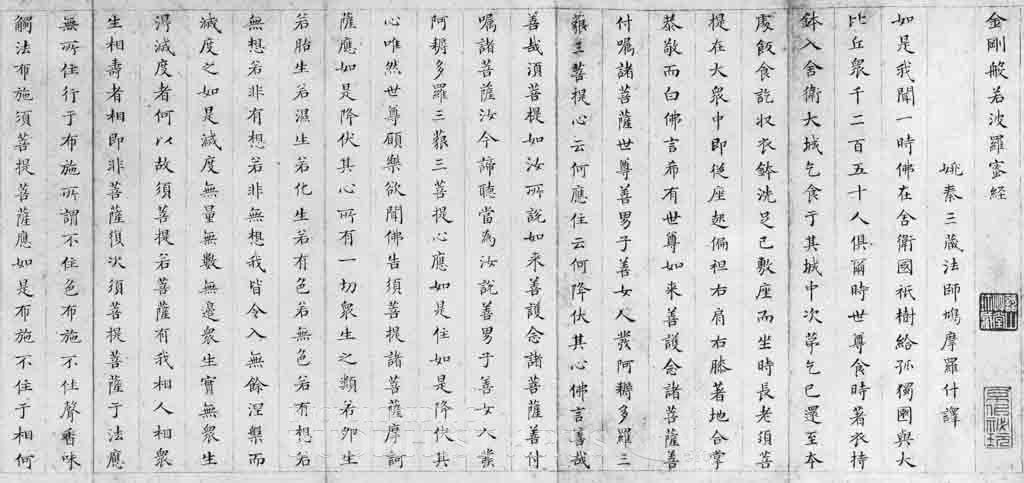 金剛般若波羅蜜經
姚秦三藏法師鳩摩羅什譯
如是我聞一時佛在舍衛國祇樹給孤獨園與大
比丘衆千二百五十人俱爾時世尊食時著衣持
鉢入舍衛大城乞食于其城中次第乞已還至本
處飯食訖收衣鉢洗足已敷座而坐時長老須菩
提在大衆中即從座起偏袒右肩右膝著地合掌
恭敬而白佛言希有世尊如来善護念諸菩薩善
付囑諸菩薩世尊善男子善女人發阿耨多羅三
藐三菩提心云何應住云何降伏其心佛言善哉
善哉須菩提如汝所說如来善護念諸菩薩善付
囑諸菩薩汝今諦聽當為汝說善男子善女人發
阿耨多羅三藐三菩提心應如是住如是降伏其
心唯然世尊願樂欲聞佛告須菩提諸菩薩摩訶
薩應如是降伏其心所有一切衆生之類若卵生
若胎生若濕生若化生若有色若無色若有想若
無想若非有想若非無想我皆令入無餘涅槃而
滅度之如是滅度無量無數無邊衆生實無衆生
得滅度者何以故須菩提若菩薩有我相人相衆
生相壽者相即非菩薩復次須菩提菩薩于法應
無所住行于布施所謂不住色布施不住聲香味
觸法布施須菩提菩薩應如是布施不住于相何